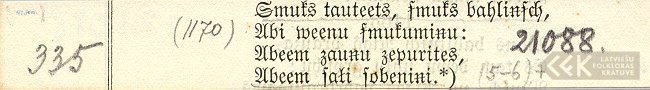 Smuks tauteets, smuks bahlinsch,
(1170) Abi weenu smukuminu:
335 Abeem zaunu zepurites, 21088.
Abeem sali sobenini.*) (5-6)+
LATVIEŠU
FOLKLORAS
KRĀTUVE